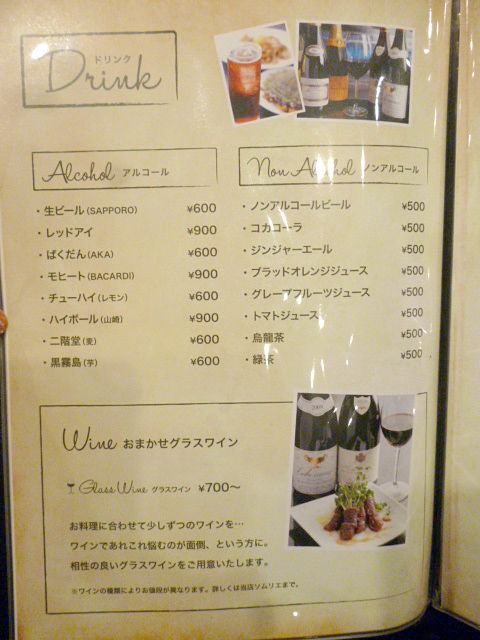 ドリンク
Drink
Alcohol アルコール
・生ビール(SAPPORO) ¥600
・レッドアイ ¥900
・ばくだん(AKA) ¥600
・モヒート(BACARDI) ¥900
・チューハイ(レモン) ¥600
・ハイボール(山崎) ¥900
・二階堂(麦) ¥600
・黒霧島(芋) ¥600
Non Alcohol ノンアルコール
・ノンアルコールビール ¥500
・コカコーラ ¥500
・ジンジャーエール ¥500
・ブラッドオレンジジュース ¥500
・グレープフルーツジュース ¥500
・トマトジュース ¥500
・烏龍茶 ¥500
・緑茶 ¥500
Wine おまかせグラスワイン
Glass Wine グラスワイン ¥700〜
お料理に合わせて少しずつのワインを…
ワインであれこれ悩むのが面倒、という方に。
相性の良いグラスワインをご用意いたします。
※ワインの種類によりお値段が異なります。詳しくは当店ソムリエまで。